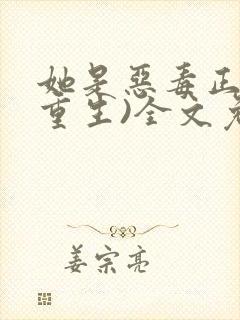 她是恶毒正
重生)全文免
姜宗亮